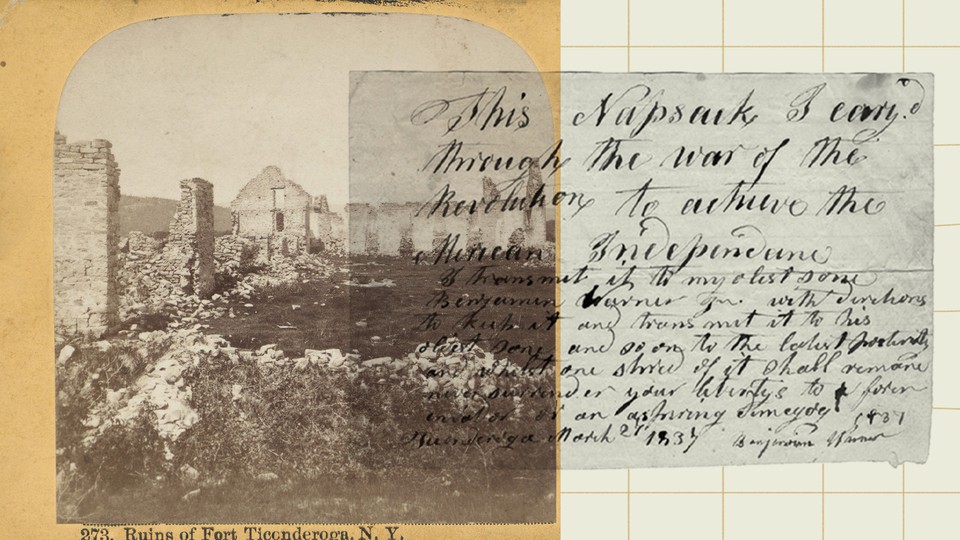 This Napsack I cary.d
through the war of the
Revolution to achieve the
Merican Independance
I transmit it to my olest sone
Benjamin Warner Jr. with directions
to keep it and transmit it to his
oldest sone and so on to the latest posterity
and whilst one shred of it shall remane
never surrender your libertys to a foren
envador or an aspiring demegog
Ticonderoga March 1837 Benjamin Warner 1837
273. Ruins of Fort Ticonderoga, N. Y.